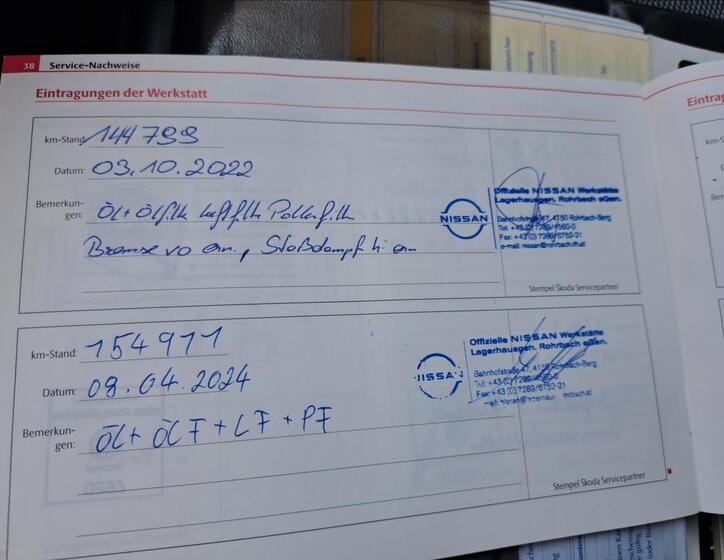 38 Service-Nachweise
Eintragungen der Werkstatt
km-Stand: 144799
Datum: 03.10.2022
Bemerkun-
gen:
Öl + Ölfilt Luftfilt Pollenfilt
Bremse vo ern., Stoßdämpf hi ern
NISSAN
Offizielle NISSAN Werkstätte
Lagerhausgen. Rohrbach eGen.
Bahnhofstraße 47, 4150 Rohrbach-Berg
Tel: +43 (0) 7289/4560-0
Fax: +43 (0) 7289/6752-21
Stempel Škoda Servicepartner
km-Stand: 154911
Datum: 09.04.2024
Bemerkun-
gen:
ÖL + ÖLF + LF + PF
NISSAN
Offizielle NISSAN Werkstätte
Lagerhausgen. Rohrbach eGen.
Bahnhofstraße 47,
Fax: +43 (0) 7289/6752-21
Stempel Škoda Servicepartner
Eintrag
km-S
Ben